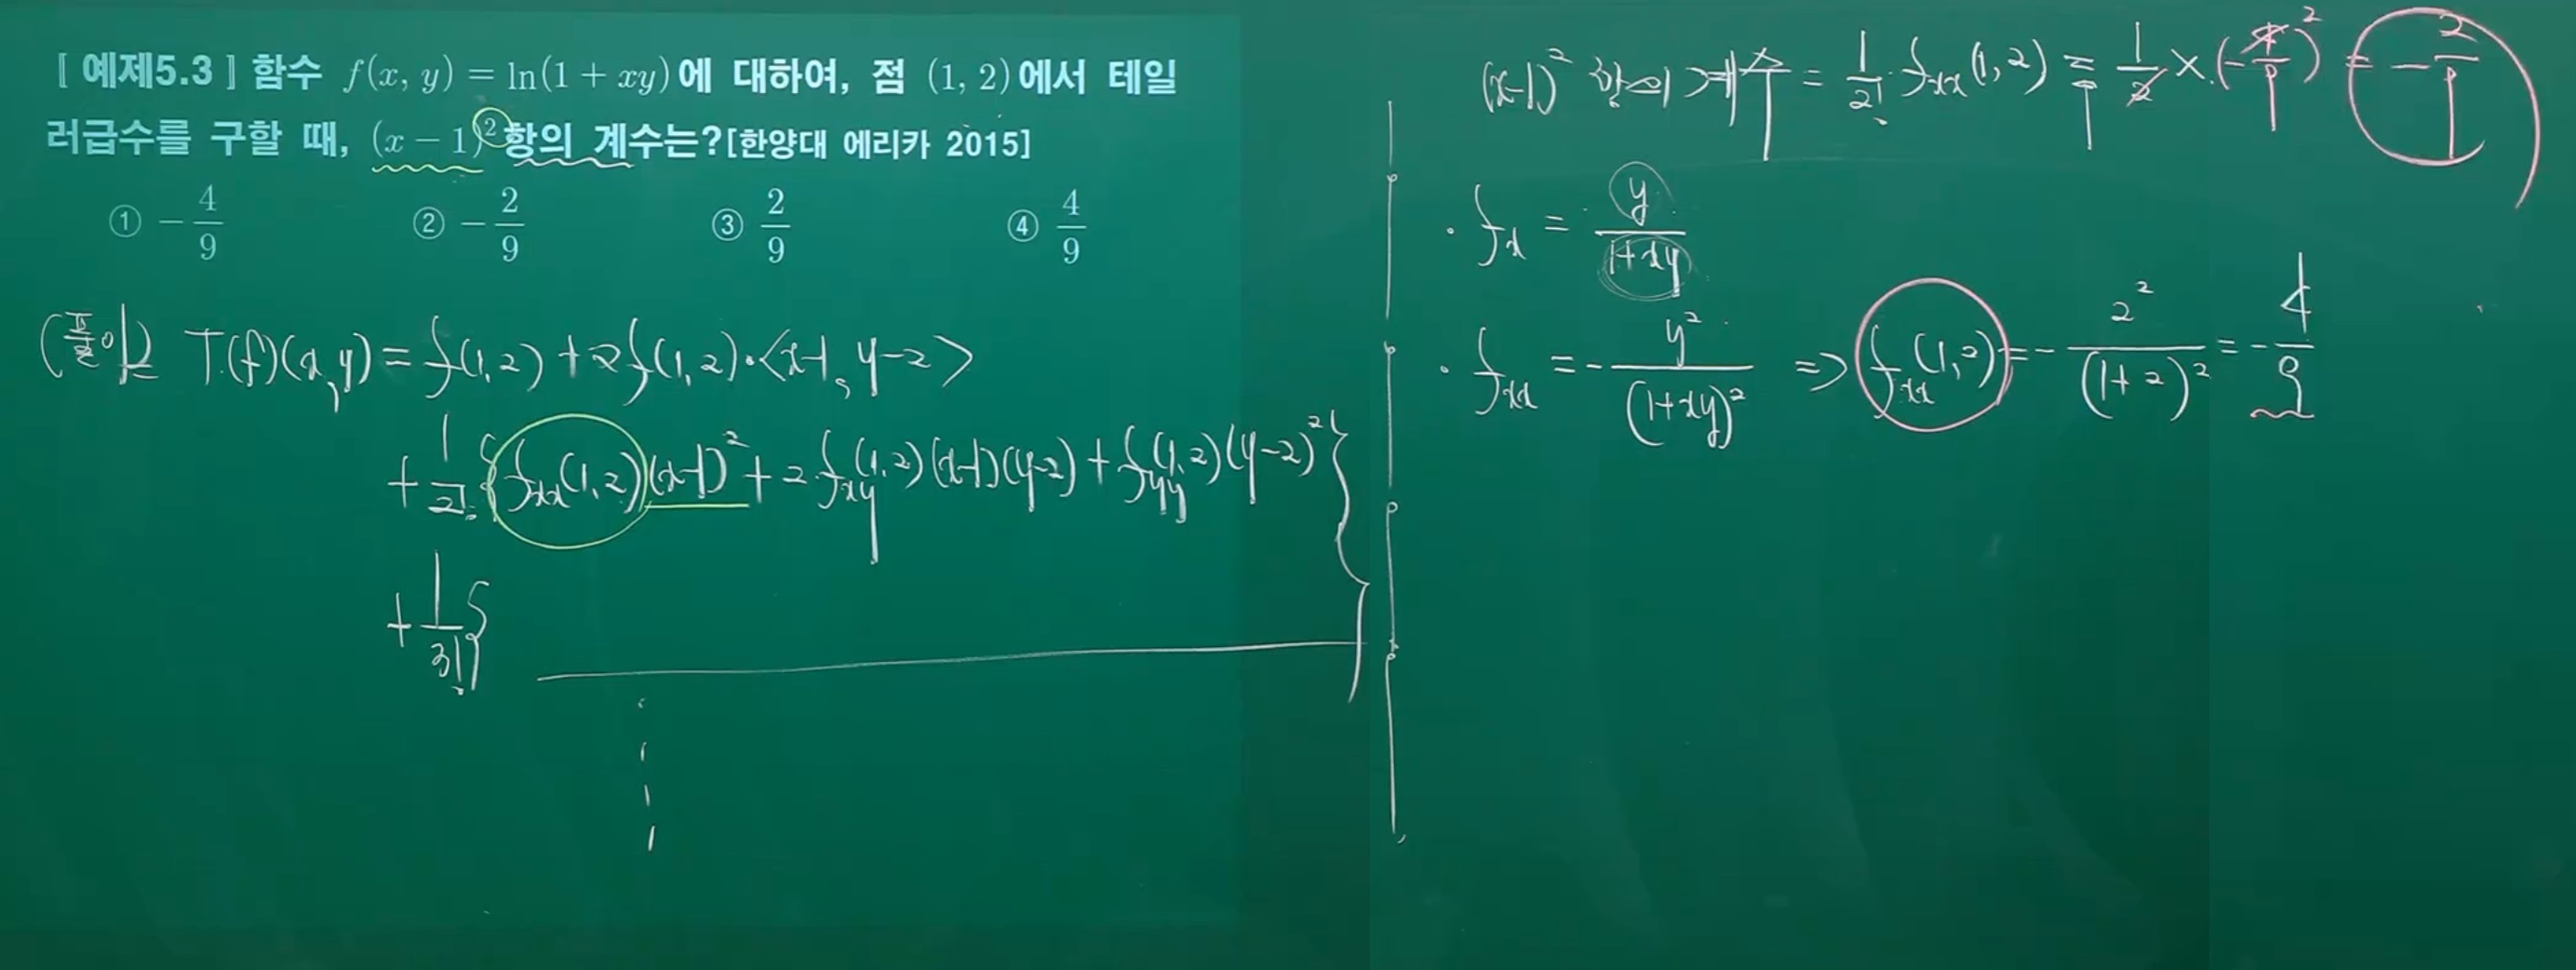 [ 예제5.3 ] 함수 f(x, y) = ln(1 + xy)에 대하여, 점 (1, 2)에서 테일
러급수를 구할 때, (x − 1)² 항의 계수는?[한양대 에리카 2015]
① −4/9 ② −2/9 ③ 2/9 ④ 4/9
(풀이) T(f)(x,y) = f(1,2) + ∇f(1,2)·<x-1, y-2>
+ 1/2! { fxx(1,2)(x-1)² + 2fxy(1,2)(x-1)(y-2) + fyy(1,2)(y-2)² }
+ 1/3! { }
(x-1)² 항의 계수 = 1/2! · fxx(1,2) = 1/2 × (-4/9) = -2/9
· fx = y/(1+xy)
· fxx = - y²/(1+xy)² => fxx(1,2) = - 2²/(1+2)² = - 4/9